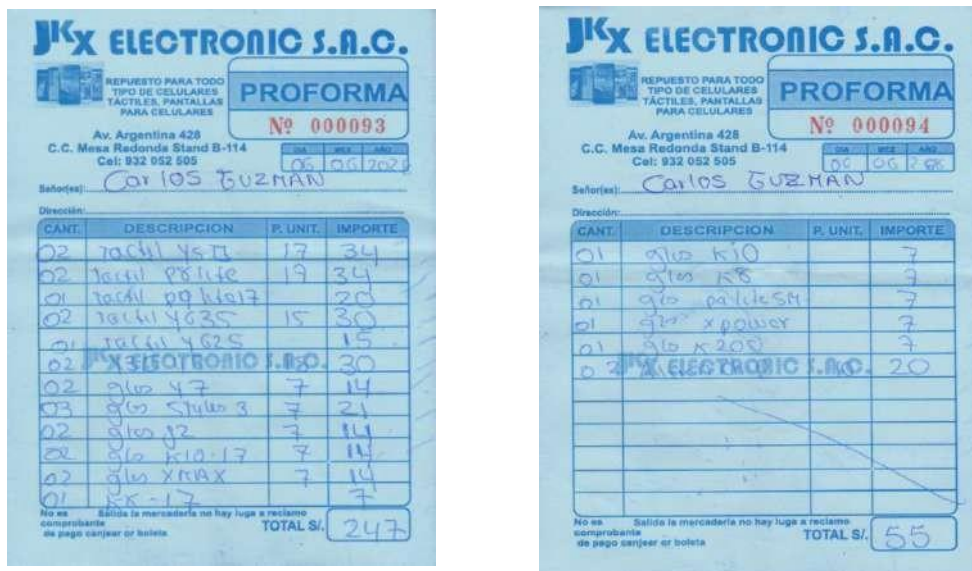 JKX ELECTRONIC S.A.C.
REPUESTO PARA TODO
TIPO DE CELULARES
TÁCTILES, PANTALLAS
PARA CELULARES
PROFORMA
Nº 000093
Av. Argentina 428
C.C. Mesa Redonda Stand B-114
Cel: 932 052 505
DIA MES AÑO
06 06
Señor(es): Carlos GUZMAN
Dirección:
CANT. DESCRIPCION P. UNIT. IMPORTE
02 Tactil 17 34
02 Tactil P8 lite 17 34
01 Tactil p9 lite17 20
02 Tactil Y635 15 30
01 Tactil Y625 15
02 30
JKX ELECTRONIC S.A.C.
02 glos Y7 7 14
03 glos Stylus 3 7 21
02 glos J2 7 14
02 glo K10-17 7 14
02 glos XMAX 7 14
01 7
No es
comprobante
de pago canjear or boleta
Salida la mercadería no hay luga a reclamo
TOTAL S/. 247
JKX ELECTRONIC S.A.C.
REPUESTO PARA TODO
TIPO DE CELULARES
TÁCTILES, PANTALLAS
PARA CELULARES
PROFORMA
Nº 000094
Av. Argentina 428
C.C. Mesa Redonda Stand B-114
Cel: 932 052 505
DIA MES AÑO
06 06
Señor(es): Carlos GUZMAN
Dirección:
CANT. DESCRIPCION P. UNIT. IMPORTE
01 glos K10 7
01 glos K8 7
01 glo p8 lite SM 7
01 glos xpower 7
01 glo K200 7
20
JKX ELECTRONIC S.A.C.
No es
comprobante
de pago canjear or boleta
Salida la mercadería no hay luga a reclamo
TOTAL S/. 55